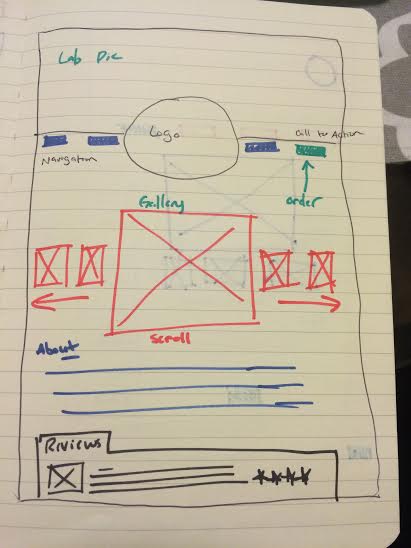 Lab Pic
Logo
Call to Action
Navigation
order
Gallery
Scroll
About
Reviews